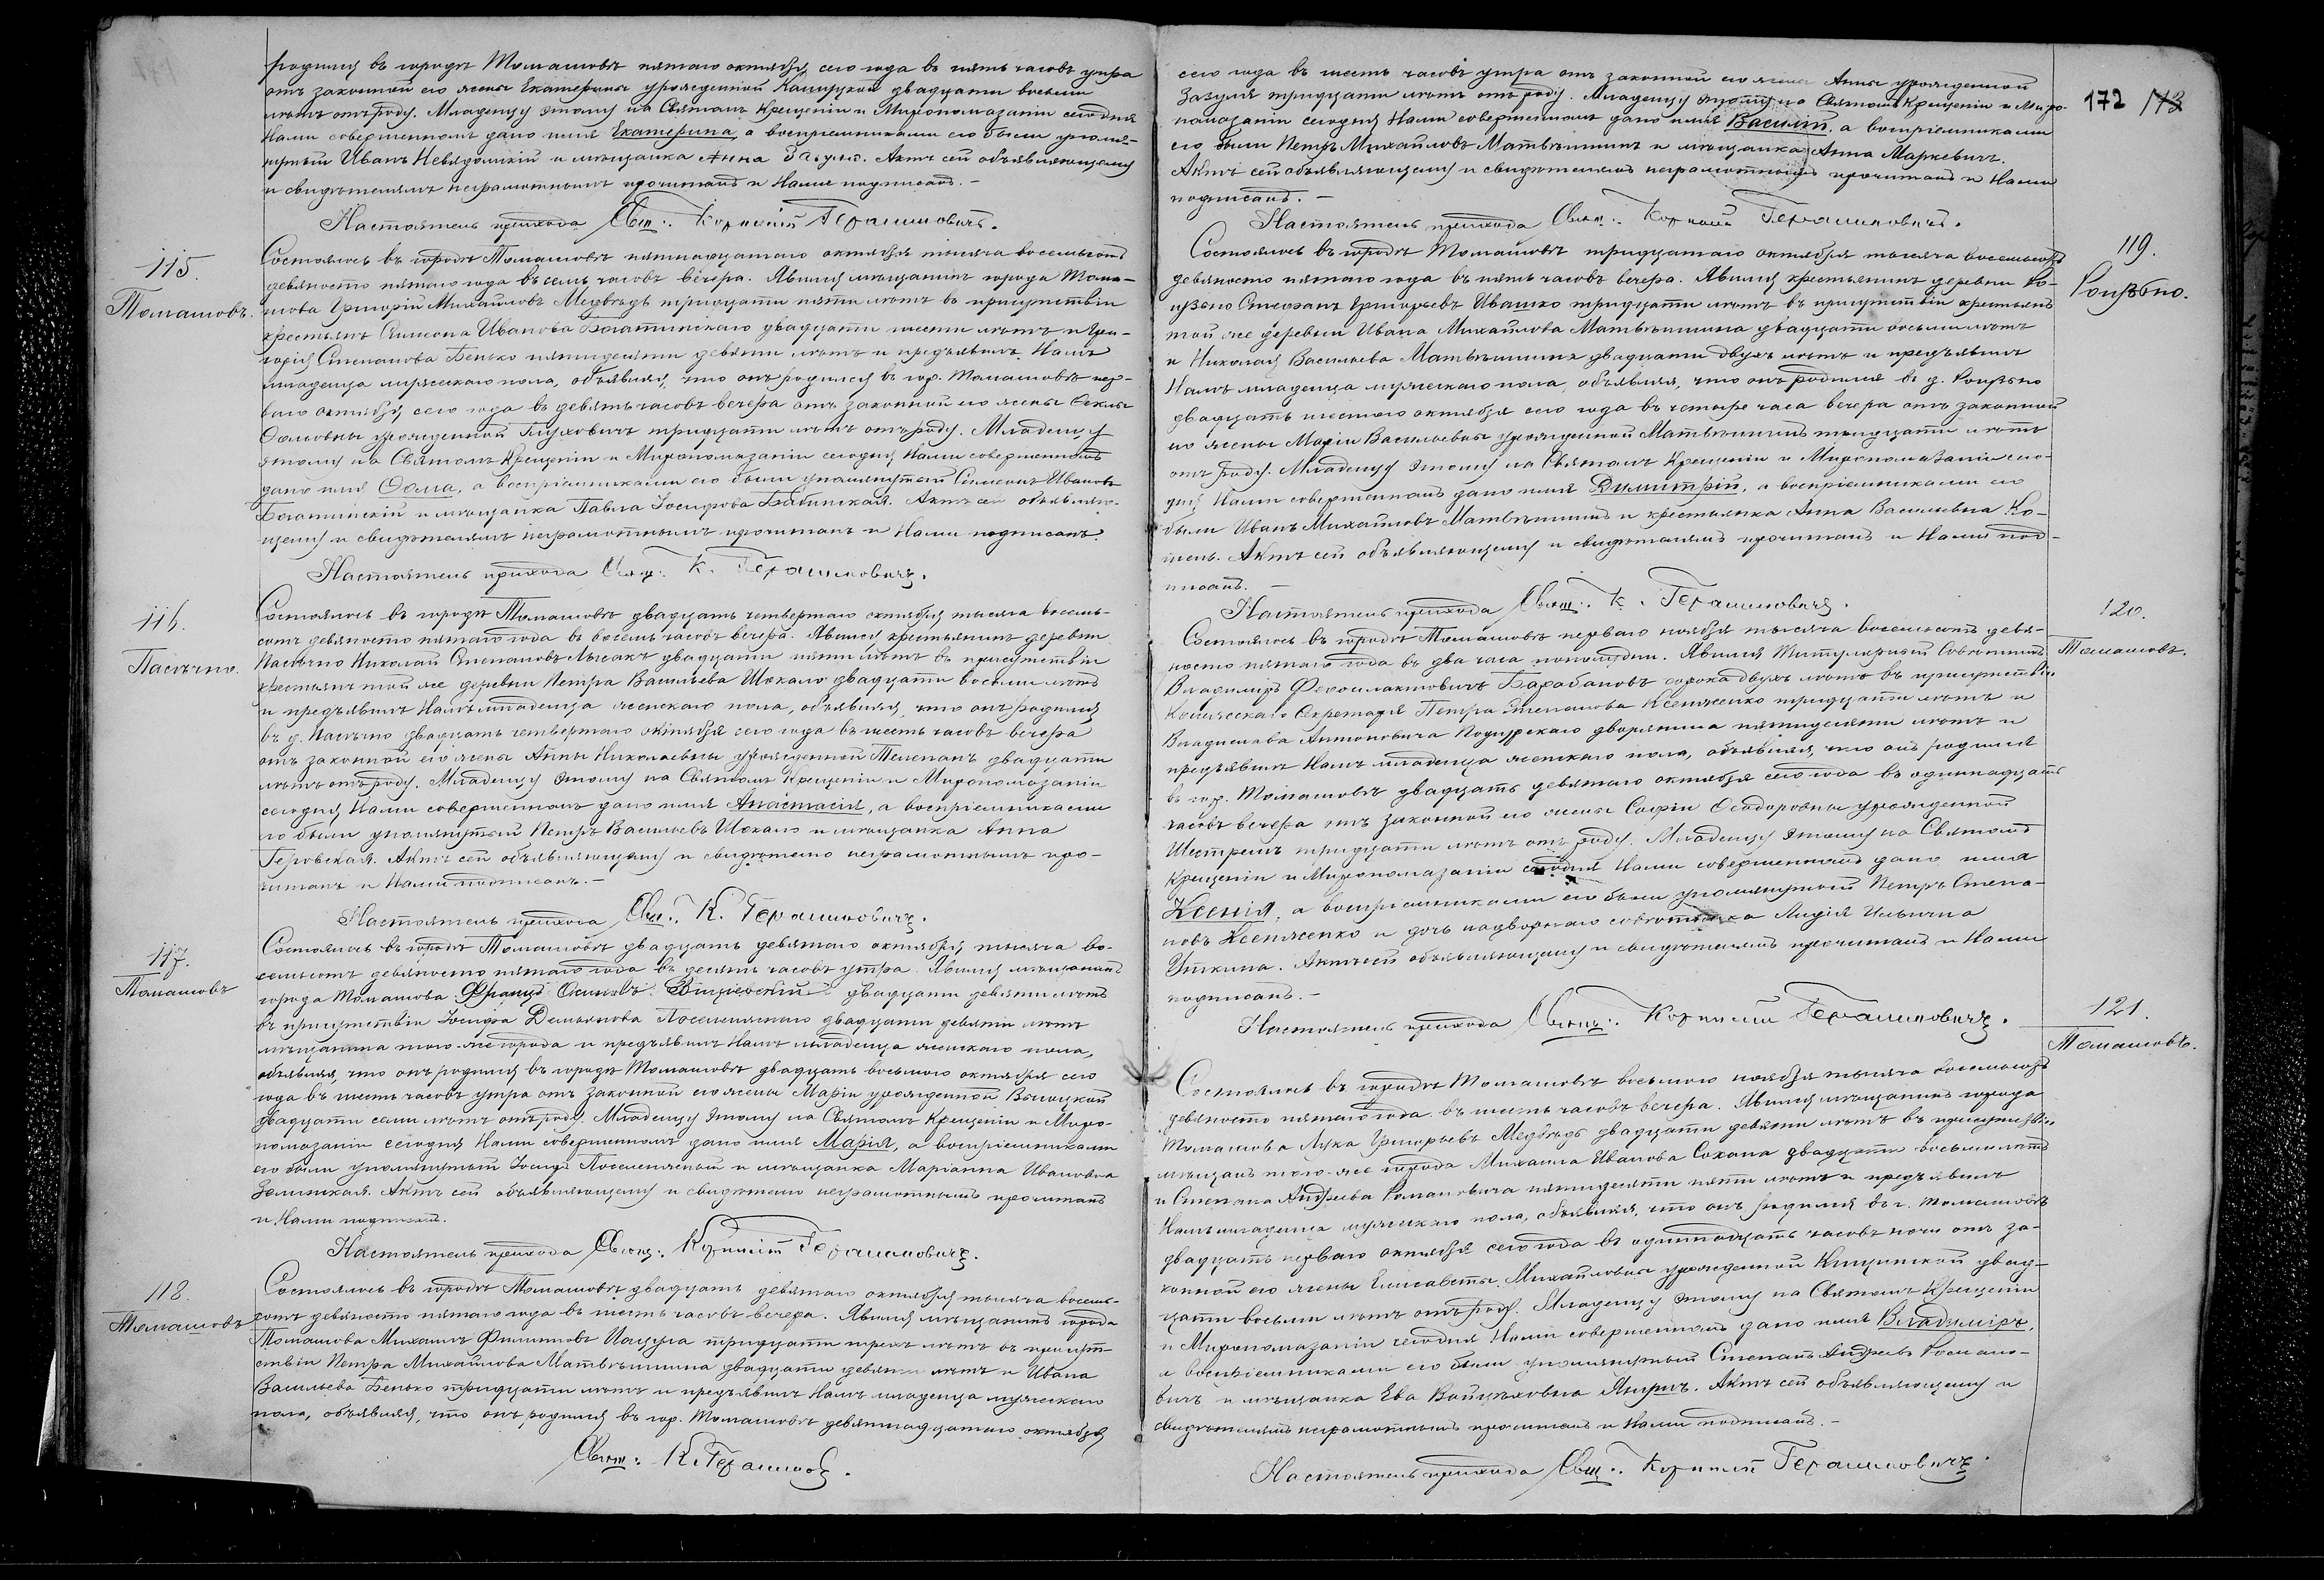 родился въ городѣ Томашовѣ пятаго октября сего года въ пять часовъ утра
отъ законной его жены Екатерины урожденной двадцати восьми
лѣтъ отъ роду. Младенцу этому на Святомъ Крещеніи и Миропомазаніи сегодня
Нами совершенномъ дано имя Екатерина, а воспріемниками его были упомя-
нутый Иванъ Невядомскій и мѣщанка Анна Зазуля. Актъ сей объявляющему
и свидѣтелямъ неграмотнымъ прочитанъ и Нами подписанъ.-
Настоятель прихода Свящ: Корнилій Герасимовичъ.
115.
Томашовъ.
Состоялось въ городѣ Томашовѣ пятнадцатаго октября тысяча восемьсотъ
девяносто пятаго года въ семь часовъ вечера. Явился мѣщанинъ города Тома-
шова Григорій Михайловъ Медвѣдь тридцати пяти лѣтъ въ присутствіи
крестьянъ Симеона Иванова Богатинскаго двадцати шести лѣтъ и Гри-
горія Степанова Бенько пятидесяти девяти лѣтъ и предъявилъ Намъ
младенца мужескаго пола, объявляя, что онъ родился въ гор. Томашовѣ пер-
ваго октября сего года въ девять часовъ вечера отъ законной его жены Ѳеклы
Ѳоминны урожденной Глуховичъ тридцати лѣтъ отъ роду. Младенцу
этому на Святомъ Крещеніи и Миропомазаніи сегодня Нами совершенномъ
дано имя Ѳома, а воспріемниками его были упомянутый Симеонъ Ивановъ
Богатинскій и мѣщанка Павла Іосифова Бабинская. Актъ сей объявляю-
щему и свидѣтелямъ неграмотнымъ прочитанъ и Нами подписанъ.
Настоятель прихода Свящ: К. Герасимовичъ.
116.
Пасѣчно.
Состоялось въ городѣ Томашовѣ двадцать четвертаго октября тысяча восемь-
сотъ девяносто пятаго года въ восемь часовъ вечера. Явился крестьянинъ деревни
Пасѣчно Николай Степановъ Лысакъ двадцати пяти лѣтъ въ присутствіи
крестьянъ той же деревни Петра Васильева Шокало двадцати восьми лѣтъ
и предъявилъ Намъ младенца женскаго пола, объявляя, что онъ родился
въ д. Пасѣчно двадцать четвертаго октября сего года въ шесть часовъ вечера
отъ законной его жены Анны Николаевны урожденной Телепанъ двадцати
лѣтъ отъ роду. Младенцу этому на Святомъ Крещеніи и Миропомазаніи
сегодня Нами совершенномъ дано имя Анастасія, а воспріемниками
его были упомянутый Петръ Васильевъ Шокало и мѣщанка Анна
Геровская. Актъ сей объявляющему и свидѣтелю неграмотнымъ про-
читанъ и Нами подписанъ.-
Настоятель прихода Свщ: К. Герасимовичъ.
117.
Томашовъ
Состоялось въ городѣ Томашовѣ двадцать девятаго октября тысяча во-
семьсотъ девяносто пятаго года въ десять часовъ утра. Явился мѣщанинъ
города Томашова Францъ двадцати девяти лѣтъ
въ присутствіи Іосифа Демьянова Поселенянаго двадцати девяти лѣтъ
мѣщанина того-же города и предъявилъ Намъ младенца женскаго пола,
объявляя, что онъ родился въ городѣ Томашовѣ двадцать восьмого октября сего
года въ шесть часовъ утра отъ законной его жены Маріи урожденной Высоцкой
двадцати семи лѣтъ отъ роду. Младенцу этому на Святомъ Крещеніи и Миро-
помазаніи сегодня Нами совершенномъ дано имя Марія, а воспріемниками
его были упомянутый Іосифъ Поселеняный и мѣщанка Маріанна Ивановна
Зелинская. Актъ сей объявляющему и свидѣтелю неграмотнымъ прочитанъ
и Нами подписанъ.
Настоятель прихода Свящ: Корнилій Герасимовичъ.
118.
Томашовъ
Состоялось въ городѣ Томашовѣ двадцать девятаго октября тысяча восемь-
сотъ девяносто пятаго года въ шесть часовъ вечера. Явился мѣщанинъ города
Томашова Михаилъ Филипповъ Нацула тридцати трехъ лѣтъ въ присут-
ствіи Петра Михайлова Матвѣишина двадцати девяти лѣтъ и Ивана
Васильева Бенько тридцати лѣтъ и предъявилъ Намъ младенца мужескаго
пола, объявляя, что онъ родился въ гор. Томашовѣ девятнадцатаго октября
Свящ: К. Герасимов.
172 173
сего года въ шесть часовъ утра отъ законной его жены Анны урожденной
Зазуля тридцати лѣтъ отъ роду. Младенцу этому на Святомъ Крещеніи и Миро-
помазаніи сегодня Нами совершенномъ дано имя Василій, а воспріемниками
его были Петръ Михайловъ Матвѣишинъ и мѣщанка Анна Маркевичъ.
Актъ сей объявляющему и свидѣтелямъ неграмотнымъ прочитанъ и Нами
подписанъ.-
Настоятель прихода Свящ: Корнилій Герасимовичъ.
119.
Рогузьно.
Состоялось въ городѣ Томашовѣ тридцатаго октября тысяча восемьсотъ
девяносто пятаго года въ пять часовъ вечера. Явился крестьянинъ деревни Ро-
гузьно Стефанъ Григорьевъ Ивашко тридцати лѣтъ въ присутствіи крестьянъ
той же деревни Ивана Михайлова Матвѣишина двадцати восьми лѣтъ
и Николая Васильева Матвѣишина двадцати двухъ лѣтъ и предъявилъ
Намъ младенца мужескаго пола, объявляя, что онъ родился въ д. Рогузьно
двадцать шестого октября сего года въ четыре часа вечера отъ законной
его жены Маріи Васильевны урожденной Матвѣишинъ тридцати лѣтъ
отъ роду. Младенцу этому на Святомъ Крещеніи и Миропомазаніи сего-
дня Нами совершенномъ дано имя Димитрій, а воспріемниками его
были Иванъ Михайловъ Матвѣишинъ и крестьянка Анна Васильевна Ко-
тель. Актъ сей объявляющему и свидѣтелямъ прочитанъ и Нами под-
писанъ.-
Настоятель прихода Свящ: К. Герасимовичъ.
120.
Томашовъ.
Состоялось въ городѣ Томашовѣ перваго ноября тысяча восемьсотъ девя-
носто пятаго года въ два часа пополудни. Явился Титулярный Совѣтникъ
Владиміръ Феофилактовичъ Барабановъ сорока двухъ лѣтъ въ присутствіи
Коллежскаго Секретаря Петра Степанова Ксенженко тридцати лѣтъ и
Владислава Антоновича дворянина пятидесяти лѣтъ и
предъявилъ Намъ младенца женскаго пола, объявляя, что онъ родился
въ гор. Томашовѣ двадцать девятаго октября сего года въ одиннадцать
часовъ вечера отъ законной его жены Софіи Ѳеодоровны урожденной
Шестремъ тридцати лѣтъ отъ роду. Младенцу этому на Святомъ
Крещеніи и Миропомазаніи сегодня Нами совершенномъ дано имя
Ксенія, а воспріемниками его были упомянутый Петръ Степа-
новъ Ксенженко и дочь надворнаго совѣтника Лидія Ильична
Уткина. Актъ сей объявляющему и свидѣтелямъ прочитанъ и Нами
подписанъ.-
Настоятель прихода Свящ: Корнилій Герасимовичъ.
121.
Томашовъ.
Состоялось въ городѣ Томашовѣ восьмого ноября тысяча восемьсотъ
девяносто пятаго года въ шесть часовъ вечера. Явился мѣщанинъ города
Томашова Лука Григорьевъ Медвѣдь двадцати девяти лѣтъ въ присутствіи
мѣщанъ того-же города Михаила Иванова Сохана двадцати восьми лѣтъ
и Степана Андреева Романовича пятидесяти пяти лѣтъ и предъявилъ
Намъ младенца мужескаго пола, объявляя, что онъ родился въ г. Томашовѣ
двадцать перваго октября сего года въ одиннадцать часовъ ночи отъ за-
конной его жены Елисаветы Михайловны урожденной двад-
цати восьми лѣтъ отъ роду. Младенцу этому на Святомъ Крещеніи
и Миропомазаніи сегодня Нами совершенномъ дано имя Владиміръ,
а воспріемниками его были упомянутый Степанъ Андреевъ Романо-
вичъ и мѣщанка Ева Войцѣховна Якушъ. Актъ сей объявляющему и
свидѣтелямъ неграмотнымъ прочитанъ и Нами подписанъ.-
Настоятель прихода Свящ: Корнилій Герасимовичъ.